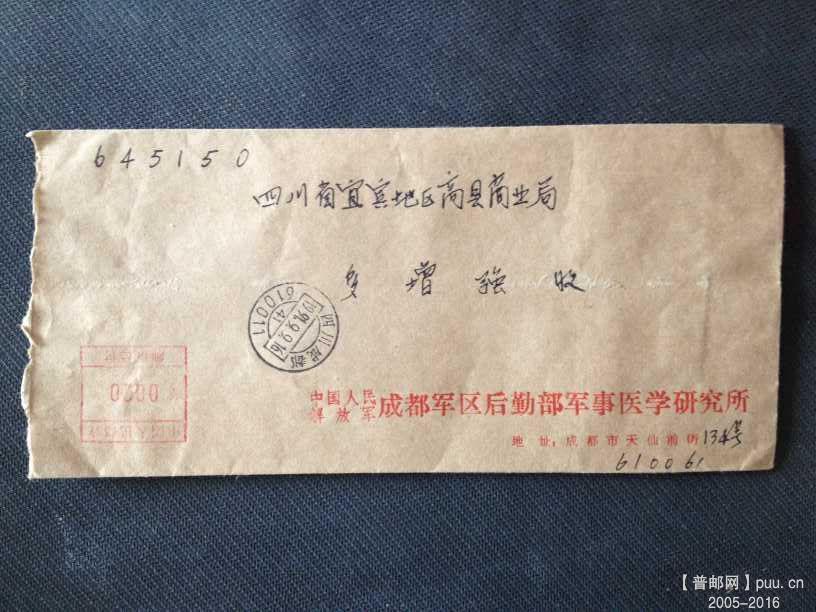 645150
四川省宜宾地区高县商业局
增强 收
610011
四川成都
中国人民
解放军
成都军区后勤部军事医学研究所
地址:成都市天仙前街134号
610061
【普邮网】puu.cn
2005-2016